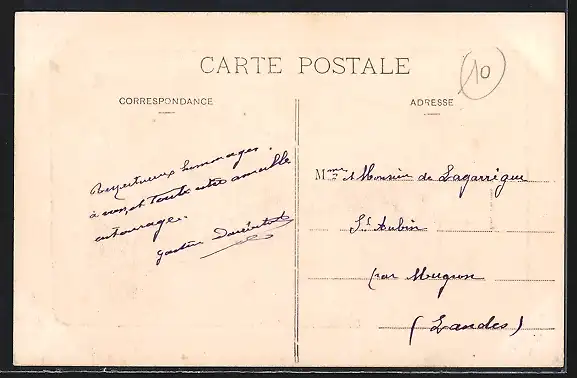 CARTE POSTALE
10
CORRESPONDANCE
ADRESSE
Respectueux hommages
à vous, et toute votre aimable
entourage.
Gaston
Mme & Monsieur de Lagarrigue
St Aubin
par Mugron
(Landes)